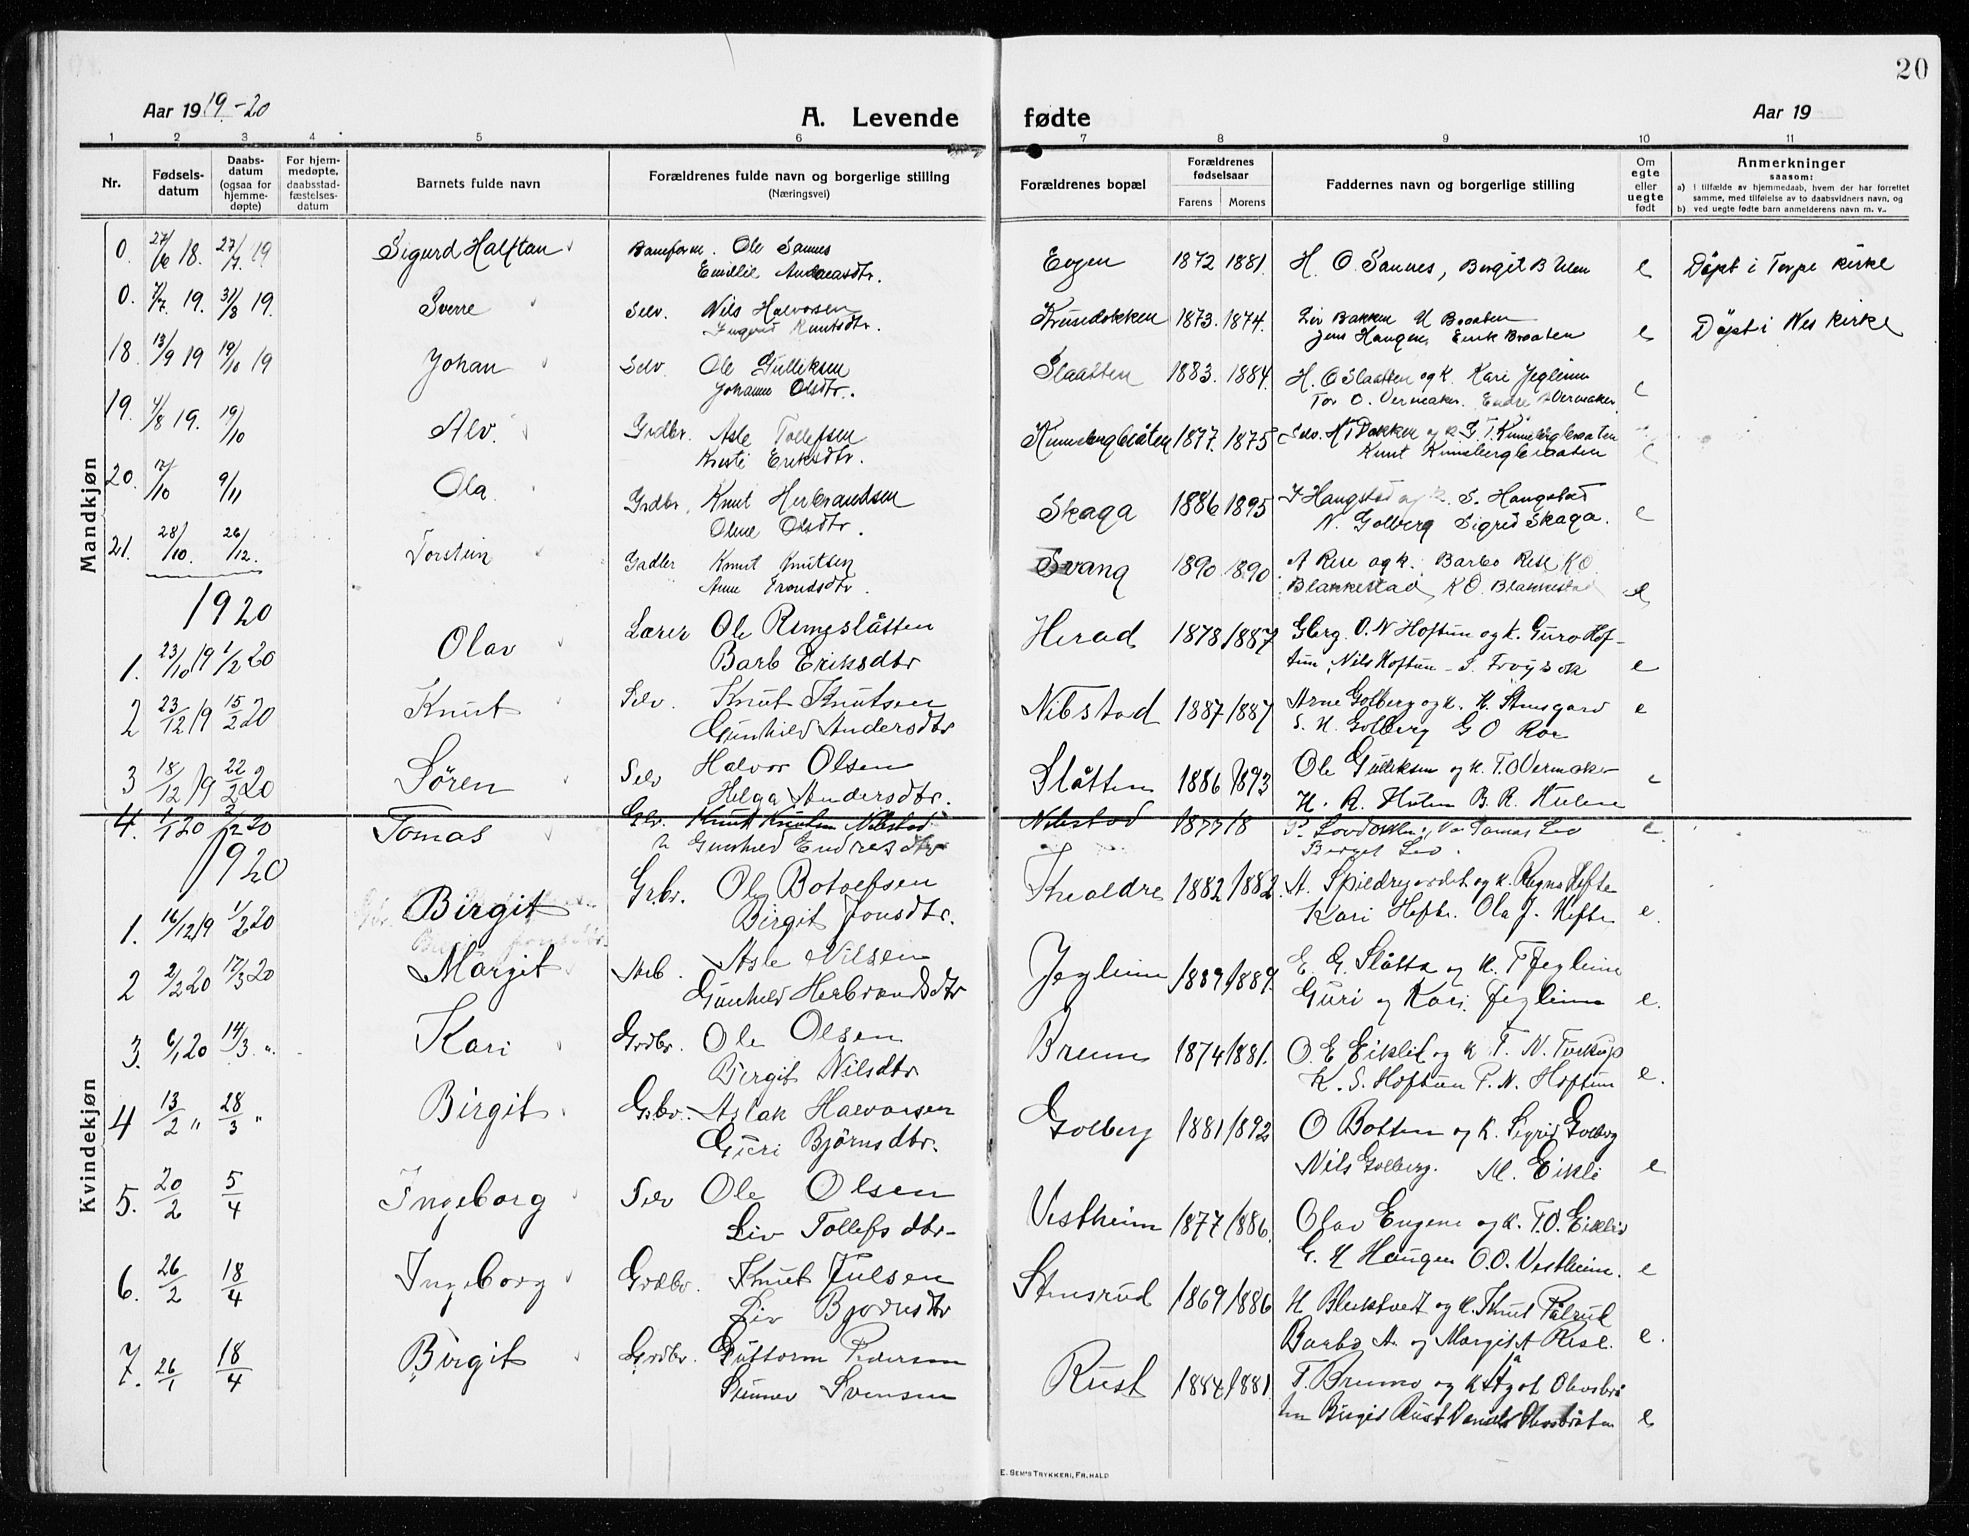 20
Aar 1919-20
A. Levende fødte
Aar 19
1 2 3 4 5 6 7 8 9 10 11
Nr.
Fødsels-
datum
Daabs-
datum
(ogsaa for
hjemme-
døpte)
For hjem-
medøpte,
daabsstad-
fæstelses-
datum
Barnets fulde navn
Forældrenes fulde navn og borgerlige stilling
(Næringsvei)
Forældrenes bopæl
Forældrenes
fødselsaar
Farens Morens
Faddernes navn og borgerlige stilling
Om
egte
eller
uegte
født
Anmerkninger
saasom:
a) i tilfælde av hjemmedaab, hvem der har forrettet
samme, med tilføielse av to daabsvidners navn, og
b) ved uegte fødte barn anmelderens navn m. v..
Mandkjøn
0. 27/6 18. 27/7 19 Sigurd Halftan Ole Sannes Evjen 1872 1881. H. O. Sannes, Birgit B e Döpt i Torpe Kirke
Emilie Andreasdtr.
0. 7/7 19. 31/8 19. Sverre Selv. Nils Halvorsen 1873. 1874. Liv Bakken N Braaten Döpt i Nes Kirke
Ingrid Knutsdtr. Jens Haugen Erik Braaten e
18. 13/9 19 19/10 19 Johan Selv. Ole Gulliksen Slaatten 1883. 1884. H. O Slaatten og k. Kari Jegleim
Johanne Olsdtr. Tor O. Vermaker. Endre Vermaker. e
19. 4/8 19. 19/10 Alv. Grdbr. Asle Tollefsen 1877. 1875
Kristi Eriksdtr. Knut Kunsbergbraaten
20. 17/10 9/11 Ola Grdbr. Knut Herbrandsen Skaga 1886 1895 Haugstad og k. S. Haugstad
Olsdtr. N. Golberg Sigrid Skaga. e
21. 28/10. 26/12. Torstein Knut Knutsen Svang 1890 1890 A Rise og k. Barbo Rise K O.
Anne Trondsdtr. Blakkestad, K O. Blakkestad e
1920
1. 23/10 19 1/2 20 Olav Lærer Ole Rimeslåtten Herad 1878 1887 Gbrg. O. N Hoftun og k. Guro Hof-
Barb Eriksdtr tun, Nils Hoftun - e
2 23/12 19 15/2 20 Knut Selv. Knut Knutsen Nibstad 1887 1887 Arne Golberg og k. e
Gunhild Andersdtr S. N. Golberg G O Roe
3 18/12 19 22/2 20 Sören Selv Halvor Olsen Slåtten 1886 1893 Ole Gulliksen og k. T. O Vermaker
Helga Andersdtr. H. A. Hulen B. R. Hulen
4. 1/1 20 2/2 20 Tomas Knut Knutsen Nibstad Nibstad 1877 Tomas Liv e
Gunhild Endresdtr Birget Liv.
1920
Kvindekjøn
1. 16/12 19 1/2 20 Birgit Grbr. Ole Botolfsen 1882 1882. og k. Ragna Hefte
Birgit Jonsdtr. Kari Hefte. Ola J. Hefte e.
2 2/2 20 17/3 20 Margit Arb. Asle Nilsen Jegleim 1889 1889. E. G. Slåtta og k. T Jegleim
Gunhild Herbrandsdtr Guri og Kari Jegleim e.
3. 6/1 20 14/3 " Kari Grdbr. Ole Olsen Breun 1874 1881. O. E Eiklid og k T. N. Torkup
Birgit Nilsdtr K. S. Hoftun P. N. Hoftun e.
4 13/2 " 28/3 " Birgit Grbr. Aslak Halvorsen Golberg 1881 1892 O Botten og k. Sigrid Golberg
Guri Björnsdtr. Nils Golberg. M. Eikli e
5. 20/2 5/4 Ingeborg Selv Ole Olsen Vestheim 1877 1886. Olav Engene og k. T. O. Eiklid
Liv Tollefsdtr- G. N Haugen O. O. Vestheim. e
6. 26/2 18/4 Ingeborg Grdbr. Knut Julsen Stensrud 1869 1886 og k. Knut Pålrud
Liv Bjornsdtr Barbo A. og Margit A Rise. e.
7. 26/1 18/4 Birgit Grdbr. Guttorm Pedersen Rust 1884 1881 T. Brumo og k
Svensen Birgit Rust e
E. SEM'S TRYKKERI, FR. HALD